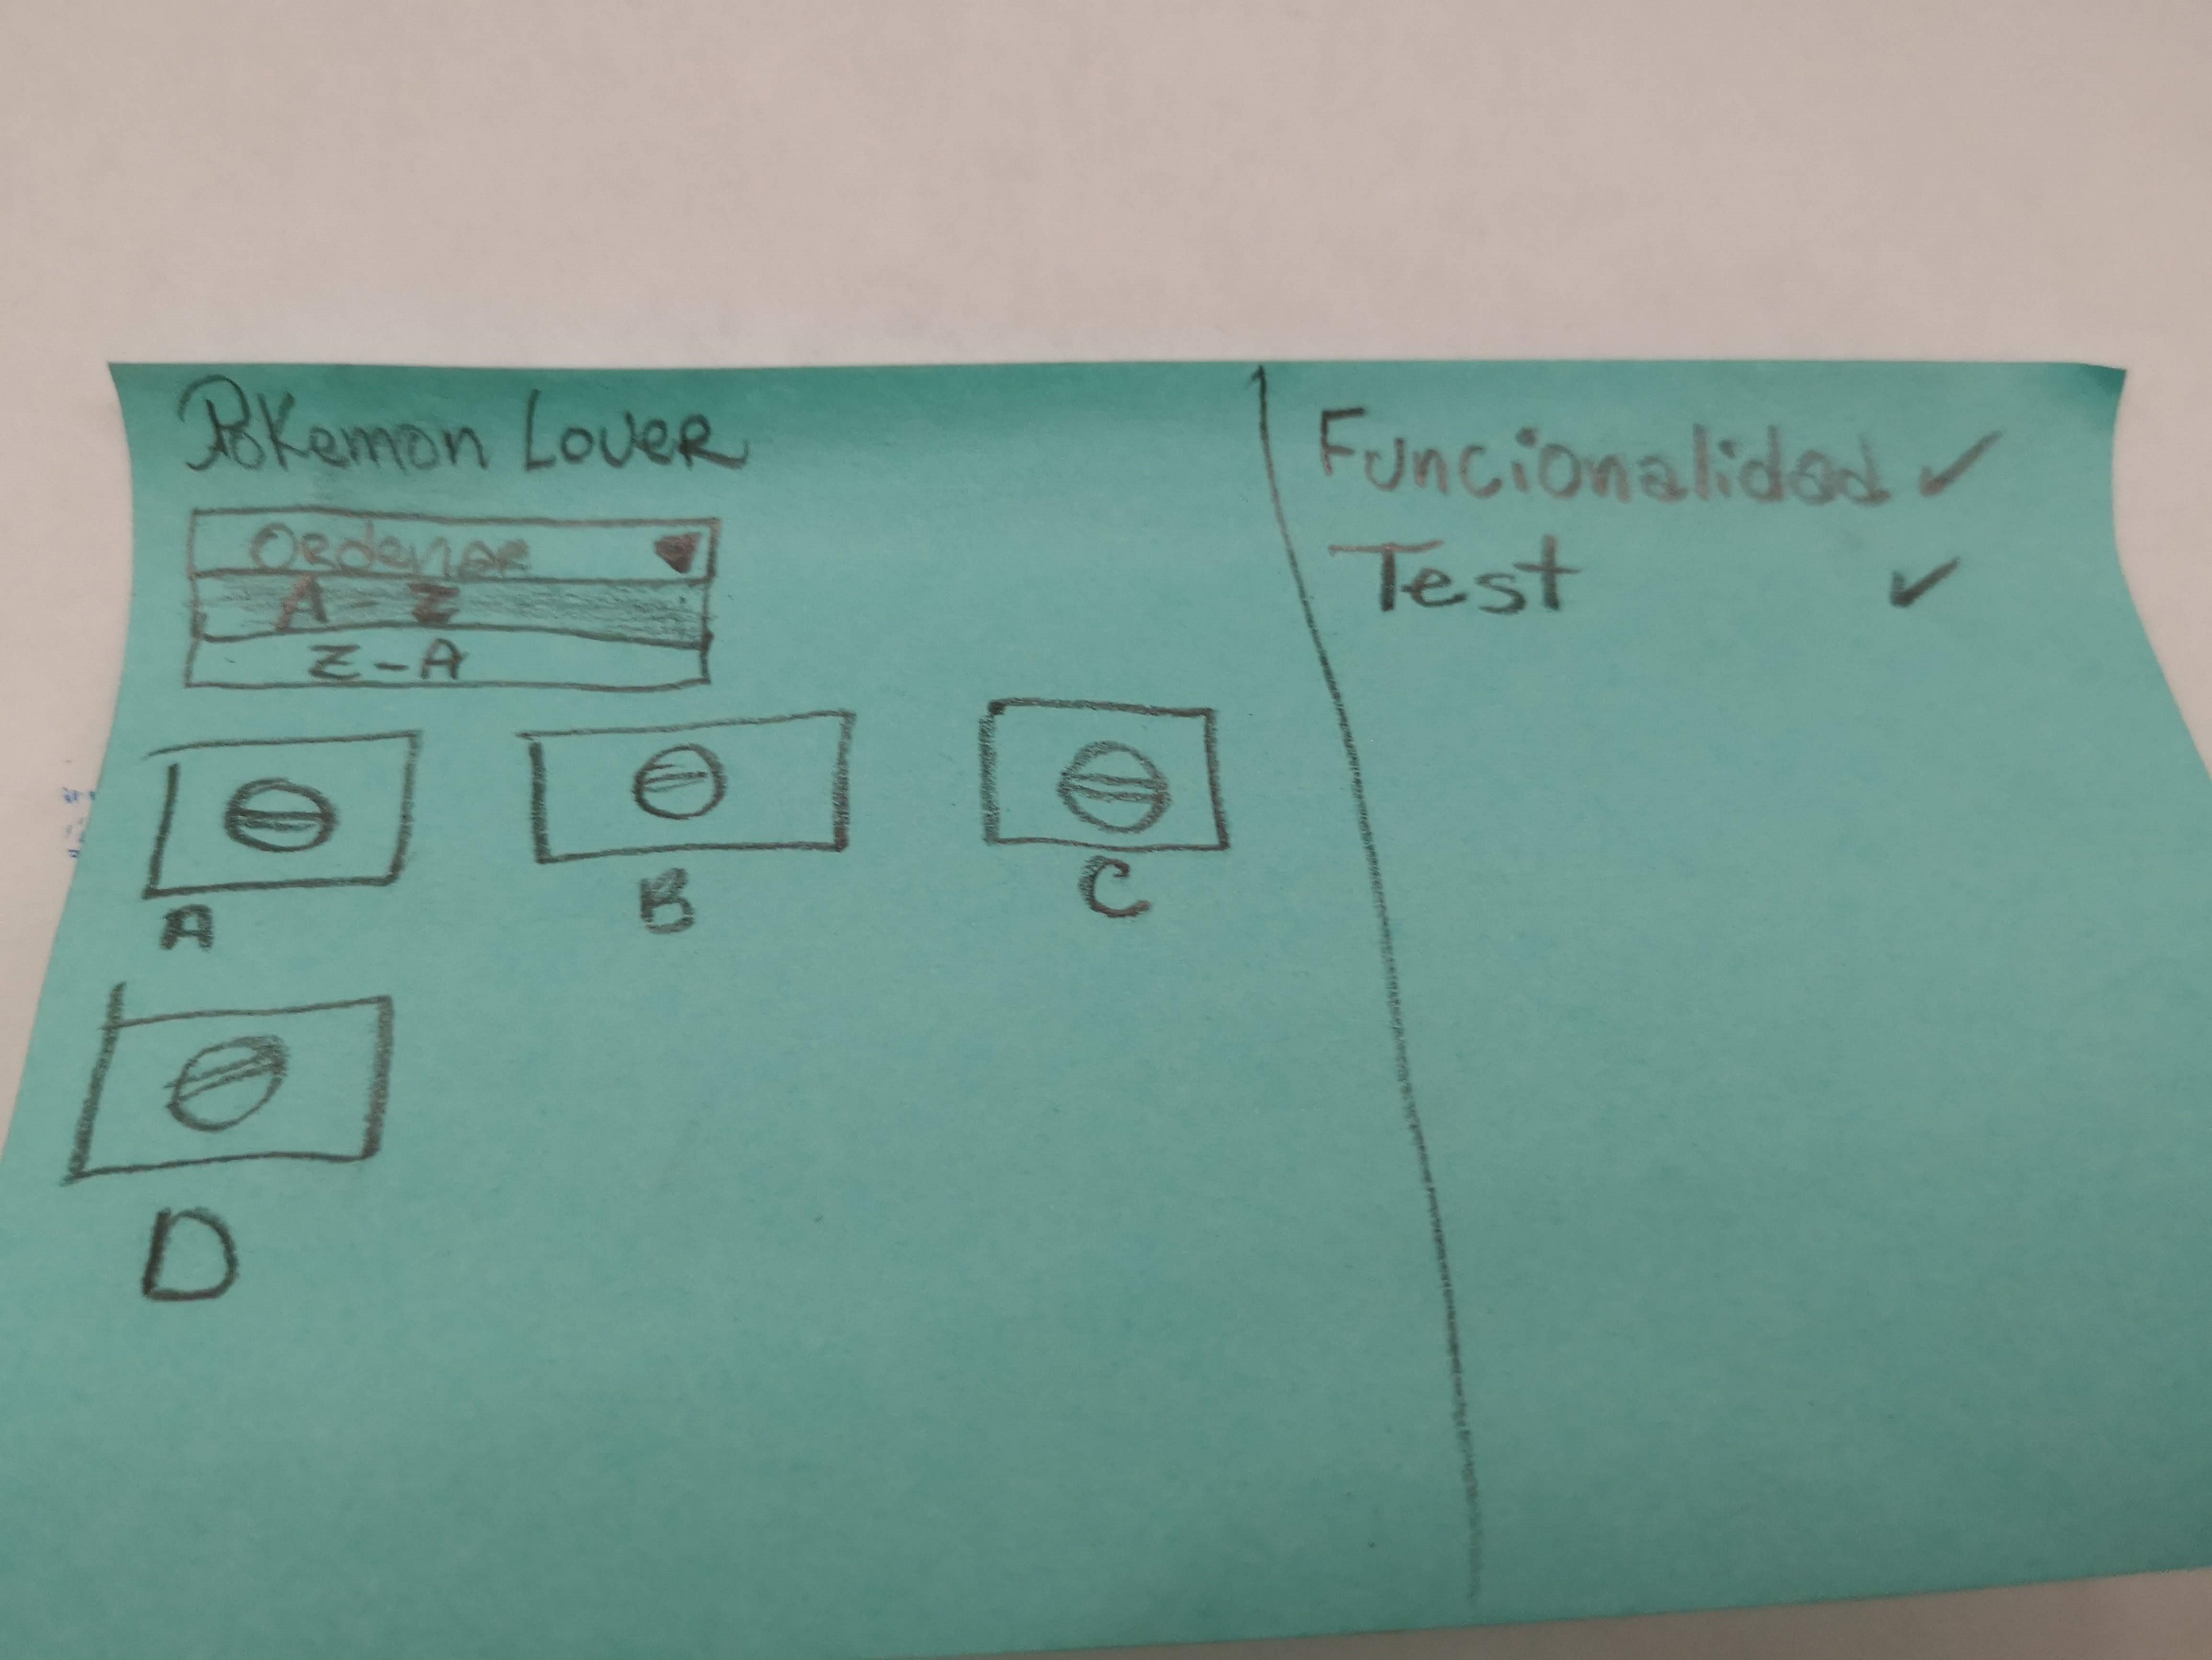 Pokemon Lover
Ordenar
A - Z
Z - A
A
B
C
D
Funcionalidad ✓
Test ✓